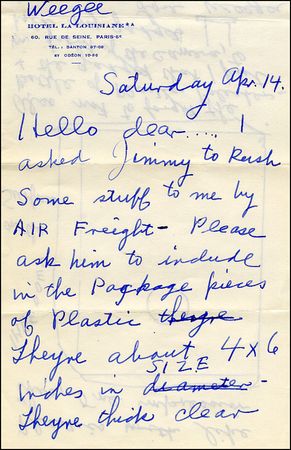 Weegee
HOTEL LA LOUISIANE**A
60, RUE DE SEINE, PARIS-6e
TÉL.: DANTON 97-08
ET ODÉON 10-86
Saturday Apr. 14.
Hello dear..... I
asked Jimmy to Rush
Some stuff to me by
AIR Freight- Please
ask him to include
in the Package pieces
of Plastic theyre
Theyre about 4x6
SIZE
inches in diameter-
Theyre thick clear